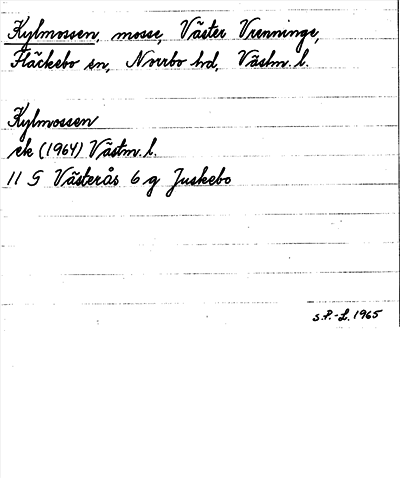 Kylmossen, mosse, Väster Vrenninge,
Fläckebo sn, Norrbo hd, Västm. l.
Kylmossen
ek (1964) Västm. l.
11 G Västerås 6 g Juskebo
S.P.-L. 1965